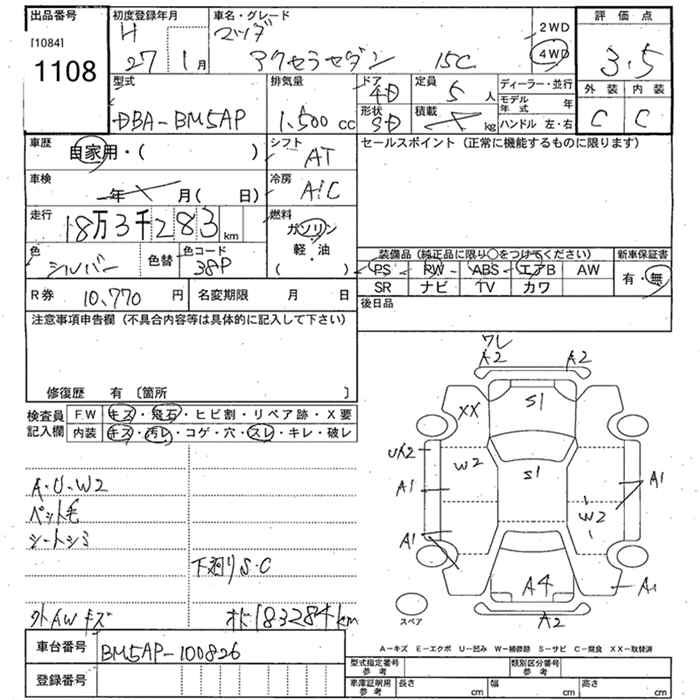 出品番号
[1084]
1108
初度登録年月
H 27 1月
車名・グレード
マツダ
アクセラセダン 15C
2WD
4WD
評価点
3.5
外装 内装
C C
型式
DBA-BM5AP
排気量
1,500 cc
ドア
4D
形状
SD
定員
5 人
積載
kg
ディーラー・並行
モデル年式 年
ハンドル 左・右
車歴
自家用・( )
シフト
AT
セールスポイント (正常に機能するものに限ります)
車検
年 月( 日)
冷房
A/C
走行
18万3千283km
燃料
ガソリン
軽・油
( )
色
シルバー
色替
色コード
38P
装備品 (純正品に限り○をつけてください)
PS RW ABS エアB AW
SR ナビ TV カワ
新車保証書
有・無
R券 10,770円
名変期限 月 日
後日品
注意事項申告欄 (不具合内容等は具体的に記入して下さい)
修復歴 有 〔箇所 〕
検査員記入欄
FW キズ・飛石・ヒビ割・リペア跡・X要
内装 キズ・汚レ・コゲ・穴・スレ・キレ・破レ
A・U・W2
ペット毛
シートシミ
下廻りS・C
外AWキズ
オド183284km
ワレ
A2 A2
XX S1
UK2
W2 S1
A1 A1
W2
A1
A4 A1
A2
スペア
A-キズ E-エクボ U-凹み W-補修跡 S-サビ C-腐食 XX-取替済
車台番号
BM5AP-100826
登録番号
型式指定番号 参考
類別区分番号 参考
車庫証明用 参考
長さ cm 幅 cm 高さ cm